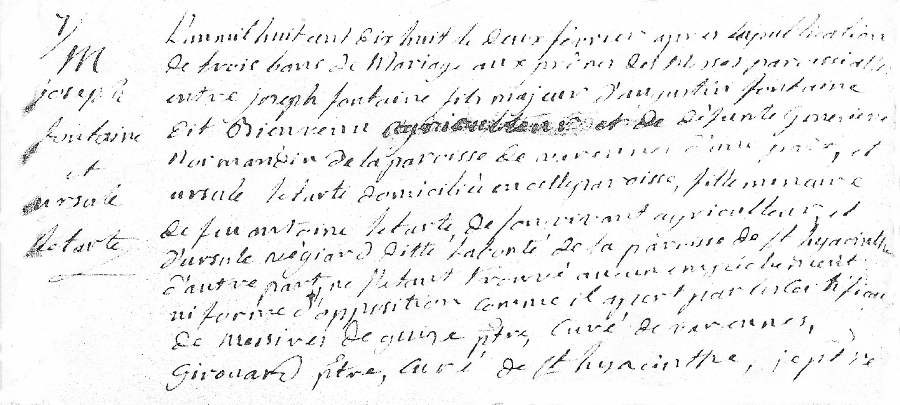 7/
M
joseph
fontaine
et
ursule
letarte
L'an mil huit cent dix huit le deux février après la publication
de trois bans de Mariage aux prônes des Messes paroissialles
entre joseph fontaine fils majeur d'augustin fontaine
dit Bienvenu agriculteur et de défunte Genevieve
Normandin de la paroisse de varennes d'une part, et
ursule letarte domiciliée en cette paroisse, fille mineure
de feu antoine letarte, de son vivant agriculteur, et
d'ursule de la paroisse de st hyacinthe
d'autre part, ne s'étant trouvé aucun empêchement
ni formé d'opposition comme il apert par les Certificats
de Messires Deguise ptre, Curé de varennes,
Girouard Ptre, Curé de st hyacinthe, je ptre